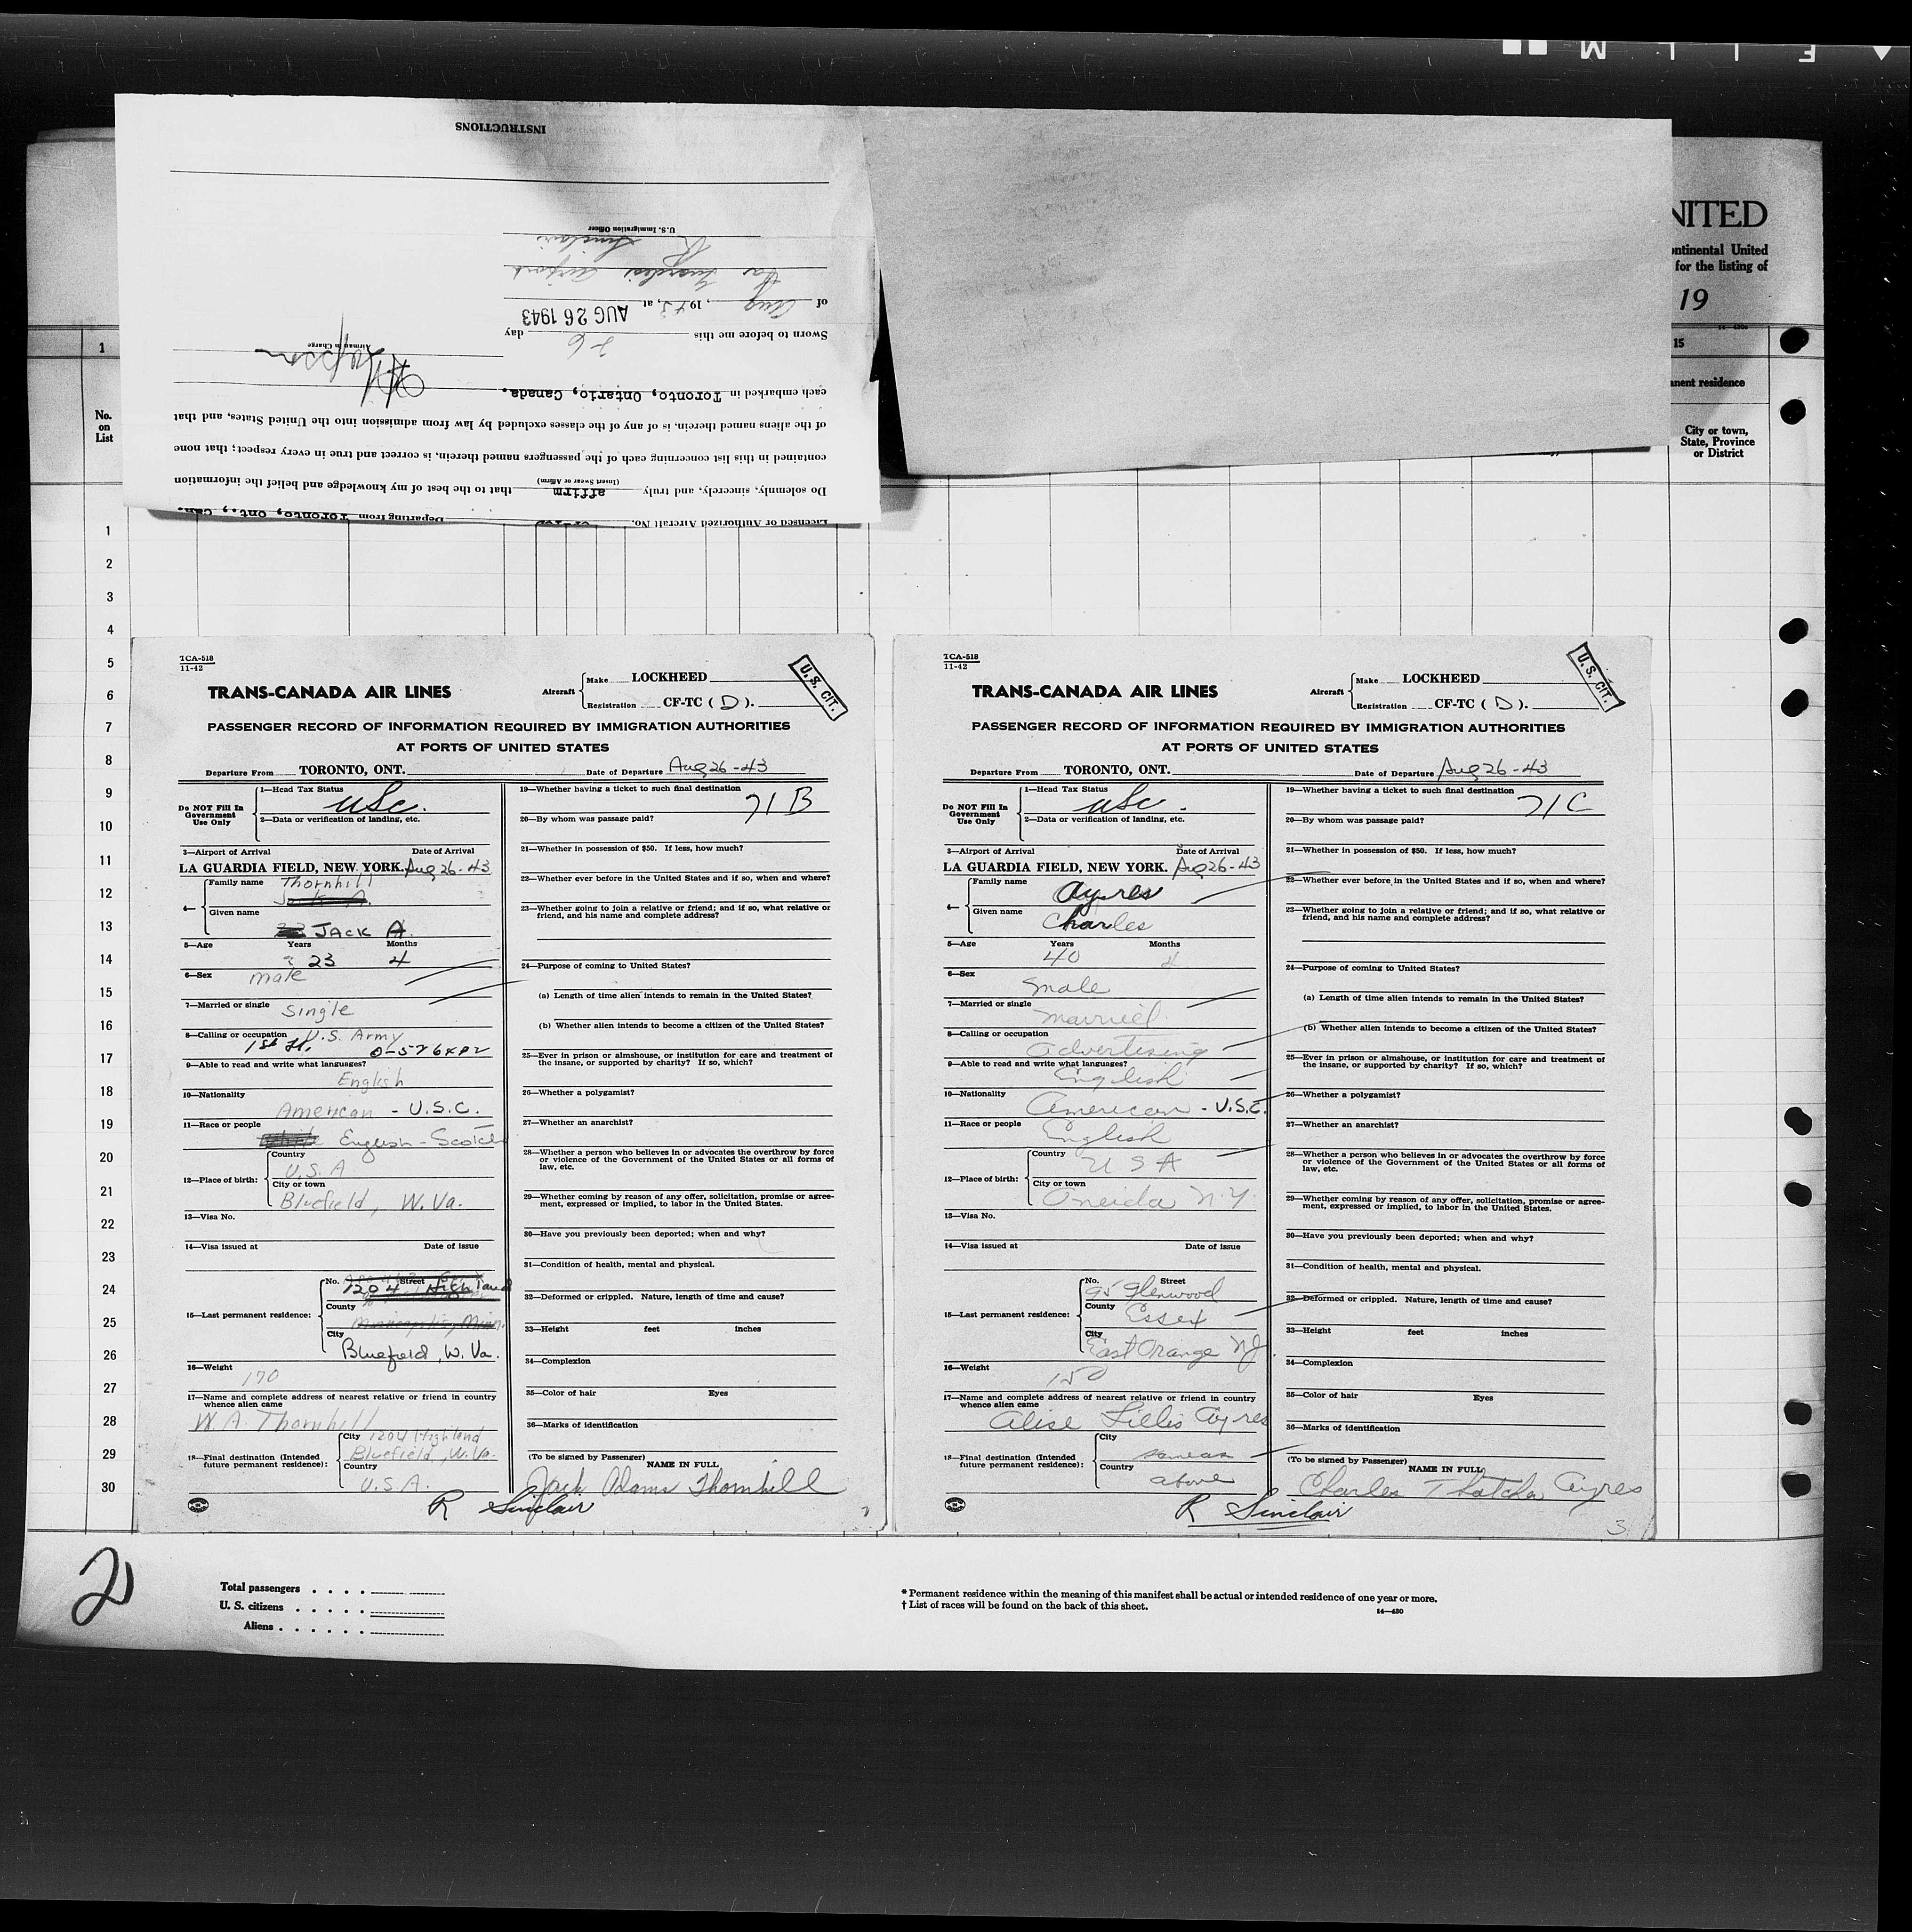 FILM
INSTRUCTIONS
U.S. Immigration Officer
R Sinclair
La Guardia Airport
of Aug, 1943, at AUG 26 1943
Sworn to before me this 26 day
Airman in Charge
each embarked in Toronto, Ontario, Canada.
of the aliens named therein, is of any of the classes excluded by law from admission into the United States, and that
contained in this list concerning each of the passengers named therein, is correct and true in every respect; that none
(Insert Swear or Affirm)
Do solemnly, sincerely, and truly affirm that to the best of my knowledge and belief the information
Licensed or Authorized Aircraft No. Departing from Toronto, Ont., Can.
NITED
ontinental United
for the listing of
19
15
anent residence
City or town,
State, Province
or District
1
No.
on
List
1
2
3
4
5
6
7
8
9
10
11
12
13
14
15
16
17
18
19
20
21
22
23
24
25
26
27
28
29
30
TCA-518
11-42
TRANS-CANADA AIR LINES
Aircraft
Make LOCKHEED
Registration CF-TC ( D ).
U.S. CIT.
PASSENGER RECORD OF INFORMATION REQUIRED BY IMMIGRATION AUTHORITIES
AT PORTS OF UNITED STATES
Departure From TORONTO, ONT. Date of Departure Aug 26-43
Do NOT Fill In
Government
Use Only
1—Head Tax Status
USC.
2—Data or verification of landing, etc.
3—Airport of Arrival Date of Arrival
LA GUARDIA FIELD, NEW YORK. Aug 26-43
4—
Family name Thornhill
Given name
JACK A.
5—Age Years Months
23 4
6—Sex male
7—Married or single
Single
8—Calling or occupation U.S. Army
1st Lt.
9—Able to read and write what languages?
English
10—Nationality
American - U.S.C.
11—Race or people
English-Scotch
12—Place of birth:
Country
U.S.A
City or town
Bluefield, W. Va.
13—Visa No.
14—Visa issued at Date of issue
15—Last permanent residence:
No. Street
1204 Highland
County
Minneapolis, Minn.
City
Bluefield, W. Va.
16—Weight
170
17—Name and complete address of nearest relative or friend in country
whence alien came
W. A. Thornhill
18—Final destination (Intended
future permanent residence):
City 1204 Highland
Bluefield, W. Va.
Country
U.S.A.
19—Whether having a ticket to such final destination
71 B
20—By whom was passage paid?
21—Whether in possession of $50. If less, how much?
22—Whether ever before in the United States and if so, when and where?
23—Whether going to join a relative or friend; and if so, what relative or
friend, and his name and complete address?
24—Purpose of coming to United States?
(a) Length of time alien intends to remain in the United States?
(b) Whether alien intends to become a citizen of the United States?
25—Ever in prison or almshouse, or institution for care and treatment of
the insane, or supported by charity? If so, which?
26—Whether a polygamist?
27—Whether an anarchist?
28—Whether a person who believes in or advocates the overthrow by force
or violence of the Government of the United States or all forms of
law, etc.
29—Whether coming by reason of any offer, solicitation, promise or agree-
ment, expressed or implied, to labor in the United States.
30—Have you previously been deported; when and why?
31—Condition of health, mental and physical.
32—Deformed or crippled. Nature, length of time and cause?
33—Height feet inches
34—Complexion
35—Color of hair Eyes
36—Marks of identification
(To be signed by Passenger)
NAME IN FULL
Jack Adams Thornhill
R Sinclair
2
TCA-518
11-42
TRANS-CANADA AIR LINES
Aircraft
Make LOCKHEED
Registration CF-TC ( D ).
U.S. CIT.
PASSENGER RECORD OF INFORMATION REQUIRED BY IMMIGRATION AUTHORITIES
AT PORTS OF UNITED STATES
Departure From TORONTO, ONT. Date of Departure Aug 26-43
Do NOT Fill In
Government
Use Only
1—Head Tax Status
USC.
2—Data or verification of landing, etc.
3—Airport of Arrival Date of Arrival
LA GUARDIA FIELD, NEW YORK. Aug 26-43
4—
Family name
Ayres
Given name
Charles
5—Age Years Months
40 4
6—Sex
male
7—Married or single
married.
8—Calling or occupation
Advertising
9—Able to read and write what languages?
English
10—Nationality
American - U.S.C.
11—Race or people
English
12—Place of birth:
Country
U S A
City or town
Oneida N.Y.
13—Visa No.
14—Visa issued at Date of issue
15—Last permanent residence:
No. Street
95 Glenwood
County
Essex
City
East Orange NJ.
16—Weight
150
17—Name and complete address of nearest relative or friend in country
whence alien came
Alise Lillis Ayres
18—Final destination (Intended
future permanent residence):
City
same as
Country
above
19—Whether having a ticket to such final destination
71 C
20—By whom was passage paid?
21—Whether in possession of $50. If less, how much?
22—Whether ever before in the United States and if so, when and where?
23—Whether going to join a relative or friend; and if so, what relative or
friend, and his name and complete address?
24—Purpose of coming to United States?
(a) Length of time alien intends to remain in the United States?
(b) Whether alien intends to become a citizen of the United States?
25—Ever in prison or almshouse, or institution for care and treatment of
the insane, or supported by charity? If so, which?
26—Whether a polygamist?
27—Whether an anarchist?
28—Whether a person who believes in or advocates the overthrow by force
or violence of the Government of the United States or all forms of
law, etc.
29—Whether coming by reason of any offer, solicitation, promise or agree-
ment, expressed or implied, to labor in the United States.
30—Have you previously been deported; when and why?
31—Condition of health, mental and physical.
32—Deformed or crippled. Nature, length of time and cause?
33—Height feet inches
34—Complexion
35—Color of hair Eyes
36—Marks of identification
(To be signed by Passenger)
NAME IN FULL
Charles Thatcher Ayres
R Sinclair
3
2
Total passengers . . . .
U. S. citizens . . . . .
Aliens . . . . . .
* Permanent residence within the meaning of this manifest shall be actual or intended residence of one year or more.
† List of races will be found on the back of this sheet.
14—430